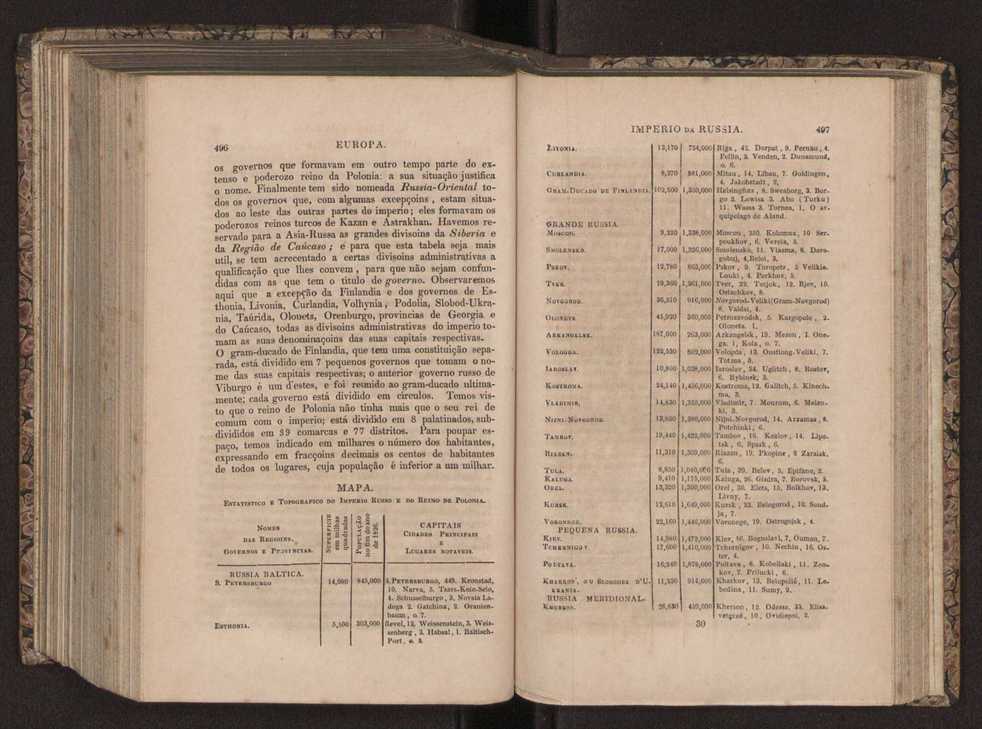 496 EUROPA.
os governos que formavam em outro tempo parte do ex-
tenso e poderozo reino da Polonia: a sua situação justifica
o nome. Finalmente tem sido nomeada Russia-Oriental to-
dos os governos que, com algumas excepçoins, estam situa-
dos ao leste das outras partes do imperio; eles formavam os
poderozos reinos turcos de Kazan e Astrakhan. Havemos re-
servado para a Asia-Russa as grandes divisoins da Siberia e
da Região de Caúcaso; e para que esta tabela seja mais
util, se tem acrecentado a certas divisoins administrativas a
qualificação que lhes convem, para que não sejam confun-
didas com as que tem o titulo de governo. Observaremos
aqui que a excepção da Finlandia e dos governos de Es-
thonia, Livonia, Curlandia, Volhynia, Podolia, Slobod-Ukra-
nia, Taúrida, Olonets, Orenburgo, provincias de Georgia e
do Caúcaso, todas as divisoins administrativas do imperio to-
mam as suas denominaçoins das suas capitais respectivas.
O gram-ducado de Finlandia, que tem uma constituição sepa-
rada, está dividido em 7 pequenos governos que tomam o no-
me das suas capitais respectivas; o anterior governo russo de
Viburgo é um d'estes, e foi reunido ao gram-ducado ultima-
mente; cada governo está dividido em circulos. Temos vis-
to que o reino de Polonia não tinha mais que o seu rei de
comum com o imperio; está dividido em 8 palatinados, sub-
divididos em 39 comarcas e 77 distritos. Para poupar es-
paço, temos indicado em milhares o número dos habitantes,
expressando em fracçoins decimais os centos de habitantes
de todos os lugares, cuja população é inferior a um milhar.
MAPA.
Estatistico e Topografico do Imperio Russo e do Reino de Polonia.
Nomes
das Regioins,
Governos e Provincias.
Superficie
em milhas
quadradas
População
no fim do ano
de 1826.
CAPITAIS
Cidades Principais
e
Lugares notaveis.
RUSSIA BALTICA.
S. Petersburgo 14,000 845,000 S. Petersburgo, 449. Kronstad,
10. Narva, 3. Tsars-Koie-Selo,
4. Schusselburgo, 3. Novaia La-
doga 2. Gatchina, 2. Oranien-
baum, o 7.
Esthonia. 5,500 303,000 Revel, 13. Weissenstein, 3. Weis-
senberg, 3. Habsal, 1. Baltisch-
Port, o. 3.
IMPERIO da RUSSIA. 497
Livonia. 13,170 754,000 Riga, 42. Dorpat, 9. Pernau, 4.
Fellin, 3. Venden, 2. Dunamund,
o. 6.
Curlandia. 8,270 581,000 Mitau, 14. Libau, 7. Goldingen,
4. Jakobstadt, 2,
Gram-Ducado de Finlandia. 102,500 1,350,000 Helsingfors, 8. Sweaborg, 3. Bor-
go 2. Lowisa 3. Abo (Turku)
11. Wassa 3. Tornea, 1. O ar-
quipelago de Aland.
GRANDE RUSSIA.
Moscou. 1,338,000 Moscou, 250. Kolomna, 10 Ser-
poukhov, 6. Vereia, 5.
Smolensko. 17,000 Smolensko, 11. Viasma, 8. Doro-
gobuj, 4, Beloi, 3.
Pskov. 12,780 Pskov, 9. Toropetz, 5 Velikia-
Louki, 4. Porkhov, 3.
Tver. Tver, 22. Torjok, 12. Rjev, 10.
Ostachkov, 8.
Novgorod. Novgorod-Veliki (Gram-Novgorod)
8. Valdai, 4.
Olonets. Petrozavodsk, 5. Kargopole, 2.
Olonets. 1.
Arkangelsk. Arkangelsk, 19. Mezen, 1. One-
ga. 1, Kola, o. 7.
Vologda. Vologda, 13. Oustioug-Veliki, 7.
Totma, 3.
Iaroslav. Iaroslav, 24. Uglitch, 6. Rostov,
6. Rybinsk, 3.
Kostroma. 24,140 Kostroma, 12. Galitch, 5. Kinech-
ma, 3.
Vladimir. Vladimir, 7. Mourom, 6. Melen-
ki, 3.
Nijni-Novgorod. Nijni-Novgorod, 14. Arzamas, 8.
Potchinki, 6.
Tambov. 19,440 Tambov, 16. Kozlov, 14. Lipe-
tsk, 6, Spask, 6.
Riazan. 11,310 Riazan, 19. Zaraisk,
6.
Tula. 1,040,000 Tula, 39. Belev, 5. Epifane, 2.
Kaluga. 9,410 1,175,000 Kaluga, 26. Gisdra, 7. Borovsk, 5.
Orel. 13,320 1,300,000 Orel, 30. Elets, 15. Bolkhov, 13.
Livny, 7.
Kursk. Kursk, 23. Belogorod, 10. Soud-
ja, 7.
Voronege. 22,160 Voronege, 19. Ostrogojsk, 4.
PEQUENA RUSSIA.
Kiev. Kiev, 56. Boguslavl, 7. Ouman, 7.
Tchernigov. 1,410,000 Tchernigov, 10. Nechin, 16. Os-
ter, 4.
Poltava. Poltava, 8. Kobeliaki, 11. Zen-
kov, 7. Prilucki, 6.
Kharkov, ou Slobodes d'U-
krania. 11,330 914,000 Kharkov, 13. Belopolié, 11. Le-
bedina, 11. Sumy, 9.
RUSSIA MERIDIONAL.
Kherson. Kherson, 12. Odessa, 33. Elisa-
vetgrad, 10, Ovidiopol, 2.
30